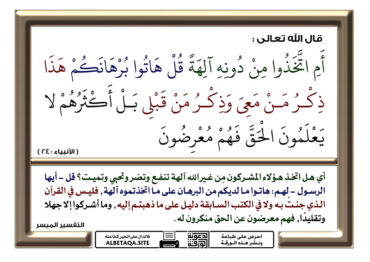 قال الله تعالى :
أَمِ اتَّخَذُوا مِنْ دُونِهِ آلِهَةً قُلْ هَاتُوا بُرْهَانَكُمْ هَذَا
ذِكْرُ مَنْ مَعِيَ وَذِكْرُ مَنْ قَبْلِي بَلْ أَكْثَرُهُمْ لا
يَعْلَمُونَ الْحَقَّ فَهُمْ مُعْرِضُونَ
(الأنبياء : ٢٤)
أي هل اتخذ هؤلاء المشركون مِن غير الله آلهة تنفع وتضر وتحيي وتميت؟ قل - أيها
الرسول - لهم: هاتوا ما لديكم من البرهان على ما اتخذتموه آلهة , فليس في القرآن
الذي جئتُ به ولا في الكتب السابقة دليل على ما ذهبتم إليه , وما أشركوا إلا جهلا
وتقليدًا , فهم معرضون عن الحق منكرون له .
التفسير الميسر
احرص على طباعة
ونشر هذه الورقة
ALBETAQA.SITE